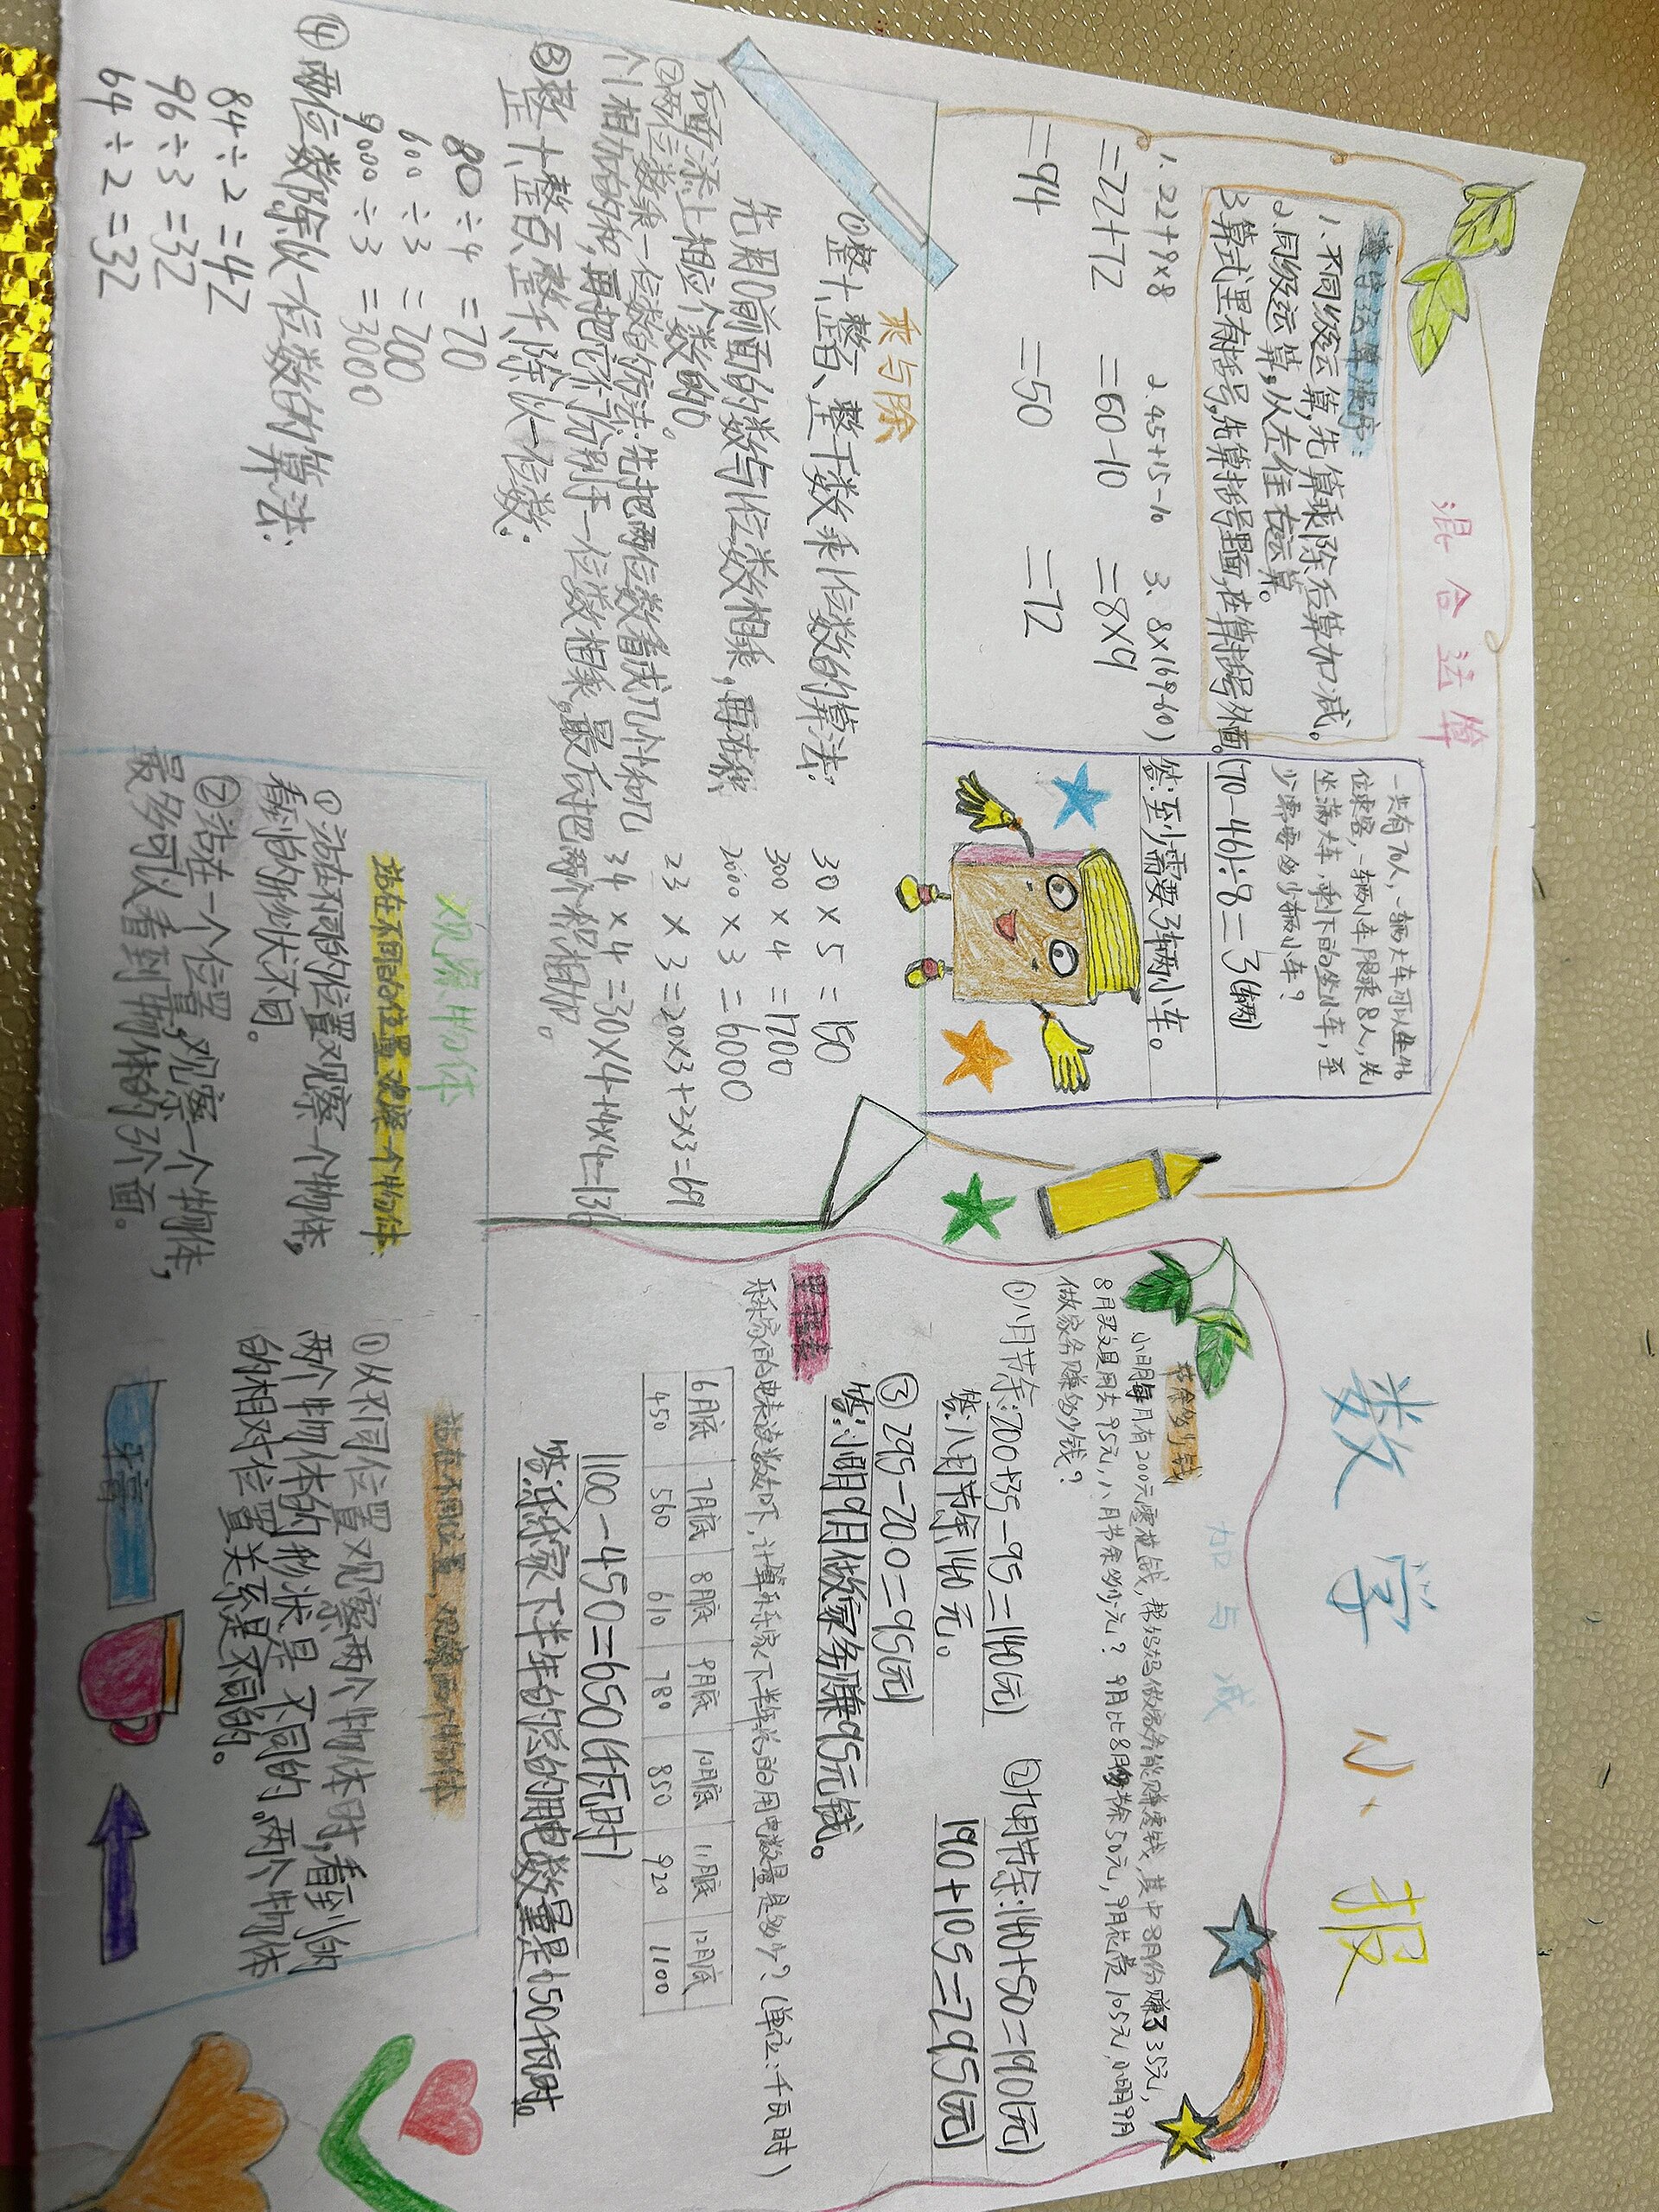 数学小报
混合运算
数字运算顺序:
1.不同级运算,先算乘除后算加减。
2.同级运算,从左往右运算。
3算式里有括号,先算括号里面,在算括号外面。
1. 22+9×8
=22+72
=94
2. 45+15-10
=60-10
=50
3、8×(69-60)
=8×9
=72
一共有70人,一辆大车可以坐46
位乘客,一辆小车限乘8人,先
坐满大车,剩下的坐小车,至
少需要多少辆小车?
(70-46)÷8=3(辆)
答:至少需要3辆小车。
乘与除
①整十、整百、整千数乘1位数的算法:
先用0前面的数与1位数相乘,再在积
后面添上相应个数的0。
②两位数乘一位数的方法:先把两位数看成几个十和几
个1相加的和,再把它们分别于一位数相乘,最后把两个积相加。
30×5=150
300×4=1200
2000×3=6000
23×3=20×3+3×3=69
34×4=30×4+4×4=136
③整十、整百、整千除以一位数:
80÷4=20
600÷3=200
9000÷3=3000
④两位数除以一位数的算法:
84÷2=42
96÷3=32
64÷2=32
加与减
节余多少钱
小明每月有200元零花钱,帮妈妈做家务能赚零钱,其中8月份赚了35元,
8月买文具用去95元,八月节余多少元?9月比8月多节余50元,9月花费105元,小明9月
做家务赚多少钱?
①八月节余:200+35-95=140(元)
答:八月节余140元。
②九月节余:140+50=190(元)
190+105=295(元)
③295-200=95(元)
答:小明9月做家务赚95元钱。
里程表
乐乐家的电表读数如下,计算乐乐家下半年的用电数量是多少?(单位:千瓦时)
6月底 7月底 8月底 9月底 10月底 11月底 12月底
450 560 610 780 850 920 1100
1100-450=650(千瓦时)
答:乐乐家下半年的总的用电数量是650千瓦时。
观察物体
站在不同的位置观察一个物体:
①站在不同的位置观察一个物体,
看到的形状不同。
②站在一个位置,观察一个物体,
最多可以看到物体的3个面。
站在不同位置,观察两个物体
①从不同位置观察两个物体时,看到的
两个物体的形状是不同的。两个物体
的相对位置关系是不同的。
牙膏